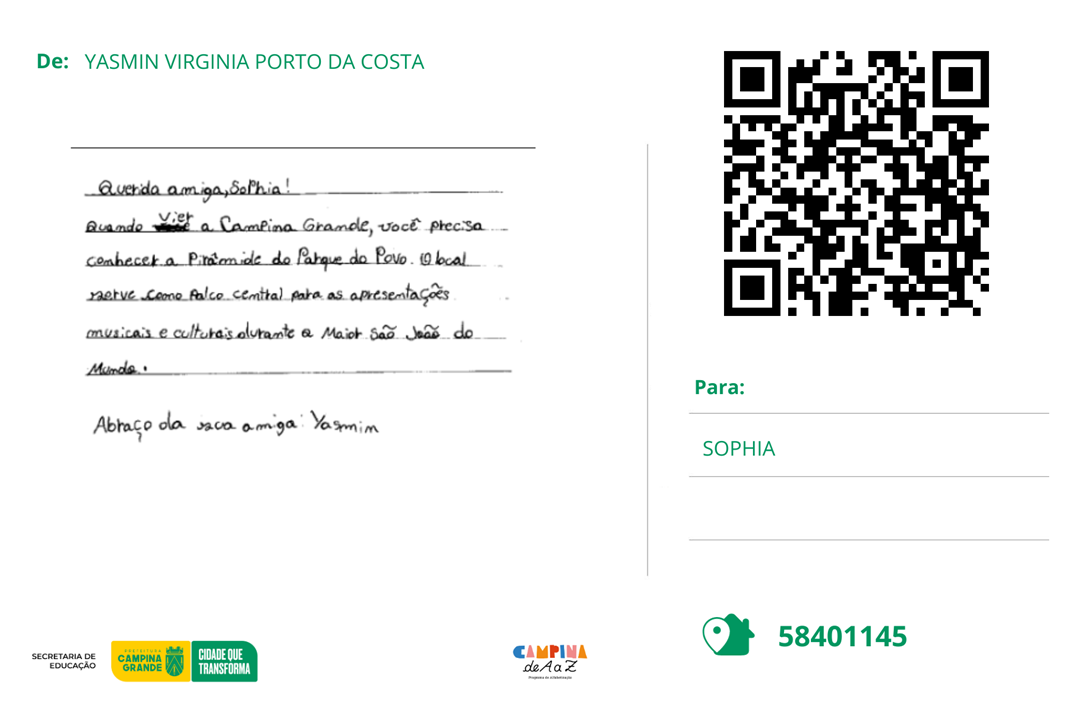 De: YASMIN VIRGINIA PORTO DA COSTA
Querida amiga, Sophia!
Quando vier a Campina Grande, você precisa
conhecer a Pirâmide do Parque do Povo. O local
serve como palco central para as apresentações
musicais e culturais durante o Maior São João do
Mundo.
Abraço da sua amiga: Yasmin
Para:
SOPHIA
58401145
SECRETARIA DE
EDUCAÇÃO
PREFEITURA
CAMPINA
GRANDE
CIDADE QUE
TRANSFORMA
CAMPINA
de A a Z
Programa de Alfabetização